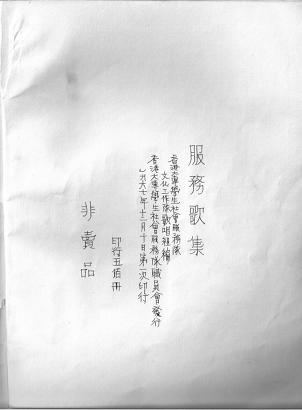 服務歌集
香港大專學生社會服務隊
文化工作隊歌唱組編
香港大專學生社會服務隊職員會發行
一九六七年十二月十日第一次印行
印行五佰冊
非賣品